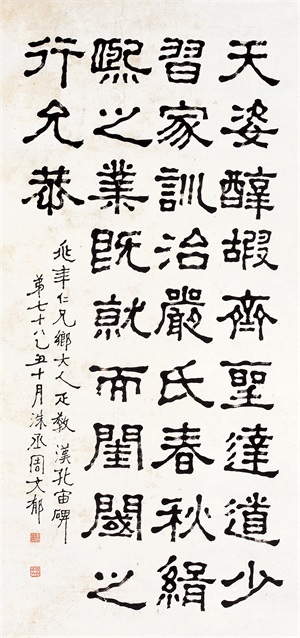 天姿醇嘏齊聖達道少
習家訓治嚴氏春秋緝
熙之業既就而閨閾之
行允恭
兆年仁兄鄉大人正教 漢孔宙碑
弟七十八乙丑十月洙丞周文郁